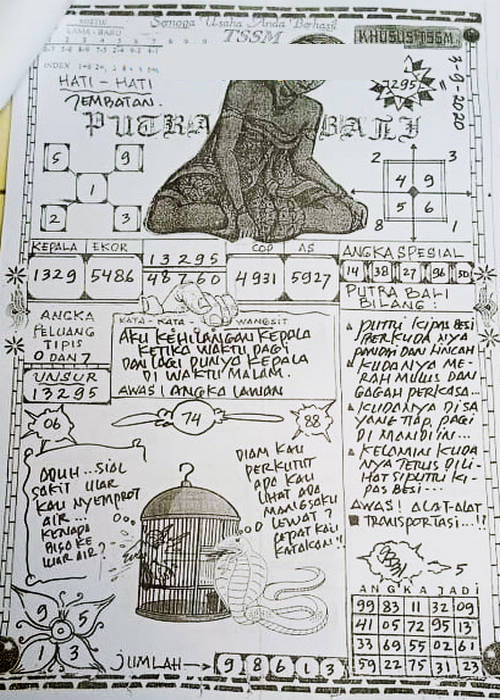 Semoga Usaha Anda Berhasil
TSSM
KHUSUS TSSM
HATI - HATI
JEMBATAN.
7295
3-9-2020
PUTRA BALI
5 9
1
2 3
2 3
4 9
5 6
8 1
KEPALA EKOR
1329 5486
13295
48760
COP AS
4931 5927
ANGKA SPESIAL
14 38 27 96 50
PUTRA BALI
BILANG :
ANGKA
PELUANG
TIPIS
0 DAN 7
UNSUR
13295
KATA - KATA WANGSIT
AKU KEHILANGAN KEPALA
KETIKA WAKTU PAGI
DAN LAGI PUNYA KEPALA
DI WAKTU MALAM.
AWAS! ANGKA LAWAN
PUTRI KIPAS BESI
PERKUDA NYA
PANDAI DAN LINCAH
KUDANYA ME-
RAH MULUS DAN
GAGAH PERKASA...
KUDANYA DISA
YANG TIAP PAGI
DI MANDIIN...
KELAMIN KUDA
NYA TERUS DILI-
HAT SI PUTRI KI-
PAS BESI...
AWAS! ALAT-ALAT
TRANSPORTASI...!!
06
74
88
ADUH... SIAL
SAKIT ULAR
KAU NYEMPROT
AIR...
KENAPA
BISA KE
LUAR AIR?
DIAM KAU
PERKUTUT
APA KAU
LIHAT ADA
MANGSAKU
LEWAT?
DAPAT KAU
KATAKAN!!
5
9 5
1 3
JUMLAH → 9 8 6 1 3
ANGKA JADI
99 83 11 32 09
41 05 72 95 13
33 69 55 02 61
59 22 75 31 23